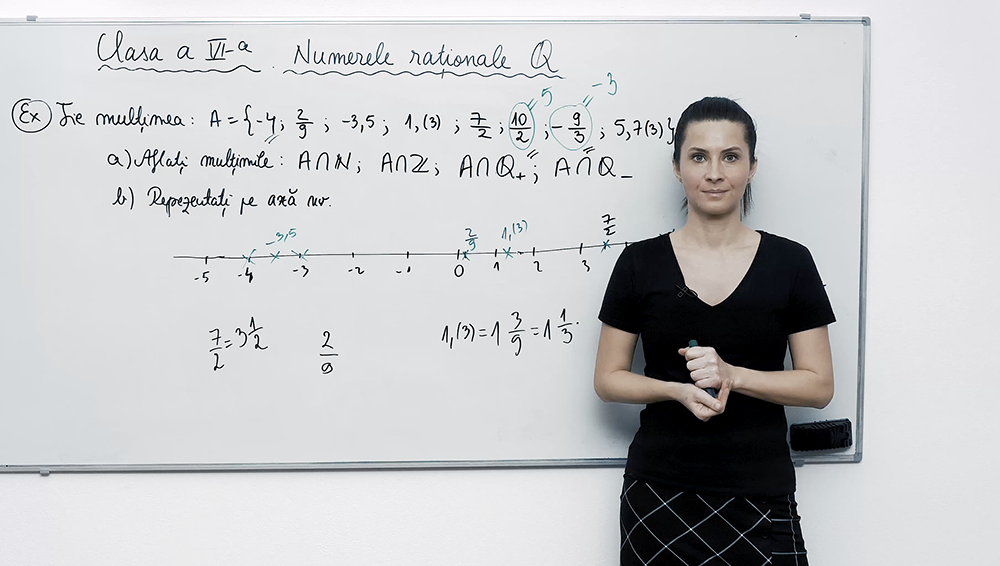 Clasa a VI-a. Numerele raționale Q
Ex Fie mulțimea: A = {-4; 2/9; -3,5; 1,(3); 7/2; 10/2; -9/3; 5,7(3)}
5 -3
a) Aflați mulțimile: A∩N; A∩Z; A∩Q₊; A∩Q₋
b) Reprezentați pe axă nr.
-3,5 2/9 1,(3) 7/2
-5 -4 -3 -2 -1 0 1 2 3
7/2 = 3 1/2 2/9 1,(3) = 1 3/9 = 1 1/3.